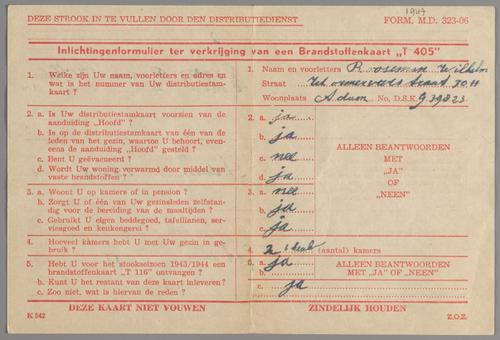 1943
DEZE STROOK IN TE VULLEN DOOR DEN DISTRIBUTIEDIENST
FORM. M.D. 323-06
Inlichtingenformulier ter verkrijging van een Brandstoffenkaart „T 405”
1. Welke zijn Uw naam, voorletters en adres en
wat is het nummer van Uw distributiestam-
kaart ?
1. Naam en voorletters Roseman Wilhelm
Straat
Woonplaats Adam No, D.S.K. G39323
2. a. Is Uw distributiestamkaart voorzien van de
aanduiding „Hoofd” ?
b. Is op de distributiestamkaart één van de leden
van het gezin, waartoe U behoort, even-
eens de aanduiding „Hoofd” gesteld ?
c. Bent U geëvacueerd ?
d. Wordt Uw woning verwarmd door middel van
vaste brandstoffen ?
2. a. ja
b. ja
c. nee
d. ja
ALLEEN BEANTWOORDEN
MET
„JA”
OF
„NEEN”
3. a. Woont U op kamers of in pension ?
b. Zorgt U of één van Uw gezinsleden zelfstan-
dig voor de bereiding van de maaltijden ?
c. Gebruikt U eigen beddegoed, tafellinnen, ser-
viesgoed en keukengerei ?
3. a. nee
b. ja
c. ja
4. Hoeveel kamers hebt U met Uw gezin in ge-
bruik ?
4. 2 (aantal) kamers
5. Hebt U voor het stookseizoen 1943/1944 een
brandstoffenkaart „T 116” ontvangen ?
b. Kunt U het restant van deze kaart inleveren ?
c. Zoo niet, wat is hiervan de reden ?
5. a. ja
b.
c. ja
ALLEEN BEANTWOORDEN
MET „JA” OF „NEEN”
K 542
DEZE KAART NIET VOUWEN
ZINDELIJK HOUDEN
Z.O.Z.